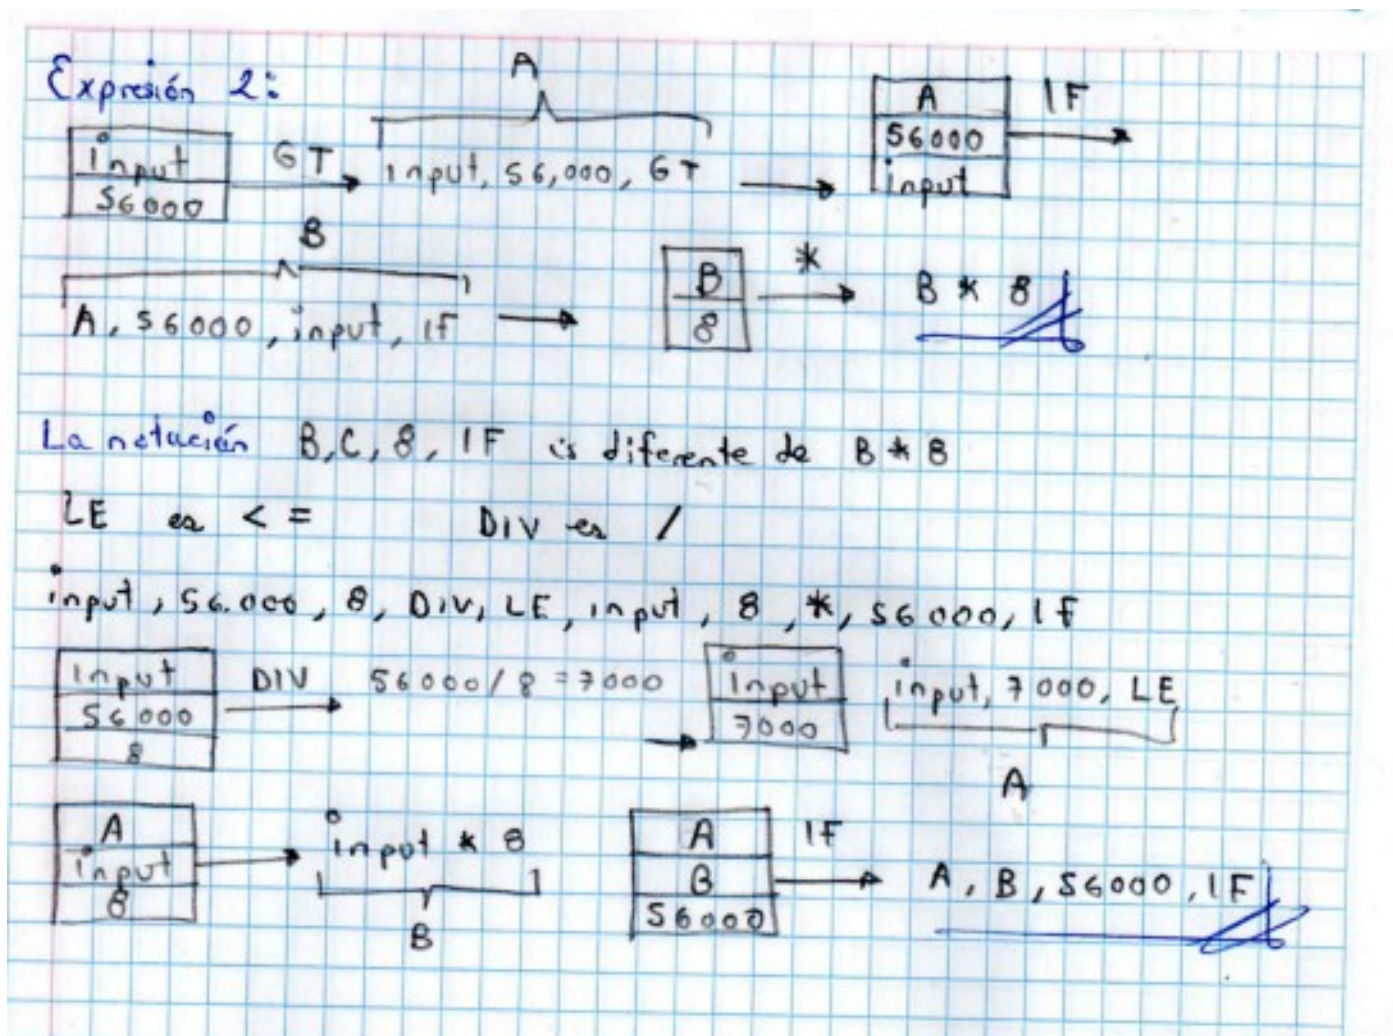 Expresión 2:
A
input
56000
GT
input, 56,000, GT
A
56000
input
IF
B
A, 56000, input, IF
B
8
*
B * 8
La notación B, C, 8, IF es diferente de B * 8
LE es < = DIV es /
input, 56.000, 8, DIV, LE, input, 8, *, 56000, IF
input
56000
8
DIV
56000 / 8 = 7000
input
7000
input, 7000, LE
A
A
input
8
input * 8
B
A
B
56000
IF
A, B, 56000, IF